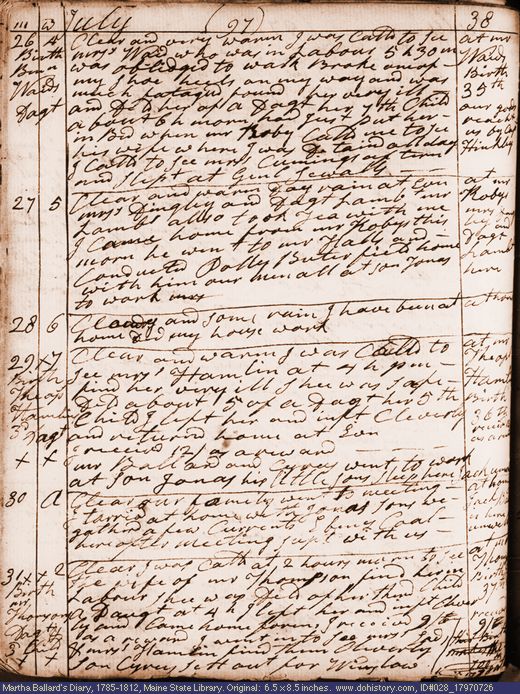 m w July (27) 38
26 4 Clear and very warm I was Calld to See at mr
Birth mrs Ward who was in Labour 5 h 30 m Wards
was obliged to walk Broke one of Birth
Wards my Shoe heels on my way and was 35th
Dagt much fatagud found her very ill
and Did her of a Dagt her 7th Child
about 6 h morn, had just put her
in Bed when mr Roby Calld me to See
his wife where I was Detaind all day Hinkley
I Calld to See mrs Cumings after tea
and Slept at Genl Sewalls
27 5 Clear and warm Day rain at Evn at mr
mrs Dingley and Dagt Lamb, mr Robys
Lamb also took Tea with me mrs
I Came home from mr Robys this
morn he went to mr Halls and Dagt
Conducted Polly Buterfield home Lamb
with him our men all at Son Jonas here
to work
28 6 Cloudy and Some rain I have been at at home
home Did my house work
29 7 Clear and warm I was Calld to at mr
Birth See mrs Hamlin at 4 h pm
Theops find her very ill Shee was Safe Hamlin
Hamlin Did about 5 of a Dagt her 5th Birth
Child I left her and inft Cleverly 36th
Dagt and returnd home at Evn receivd
x x I receivd 12/ as a reward
mr Ballard and Cyrus went to work
at Son Jonas his little Son Stephen
30 A Clear our family went to meeting at home
I tarried at home we Jonas Sons
gatherd a few Currents
him after meeting Supt with us
31 2 Clear I was Calld at 2 hours morn to See at
Birth the wife of mr Thompson find her in
mr Labour Shee was Did of her third Child Birth
Thompson a Dagt at 4 h I left her and inft Clever 37
Dagt ly and Came home, I receivd 9/ receivd
as a reward 9/
x x & mrs Hamlin find them Cleverly
Son Cyrus Sett out for Winslow
Martha Ballard's Diary, 1785-1812, Maine State Library. Original: 6.5 x 8.5 inches. www.dohistory.com, ID#028_17970726